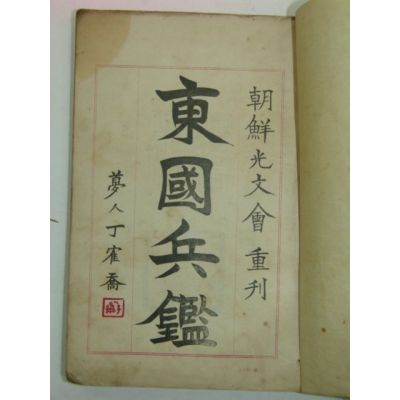 朝鮮光文會 重刊
東國兵鑑
夢人 丁寉喬